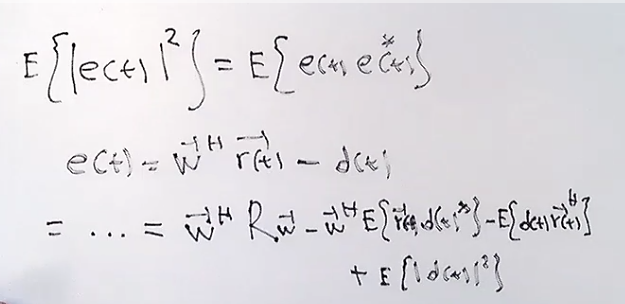 E{|e(t)|²} = E{e(t) e*(t)}
e(t) = w⃗ᴴ r⃗(t) - d(t)
= ... = w⃗ᴴ R w⃗ - w⃗ᴴ E{r⃗(t) d(t)*} - E{d(t) r⃗(t)ᴴ}
+ E{|d(t)|²}